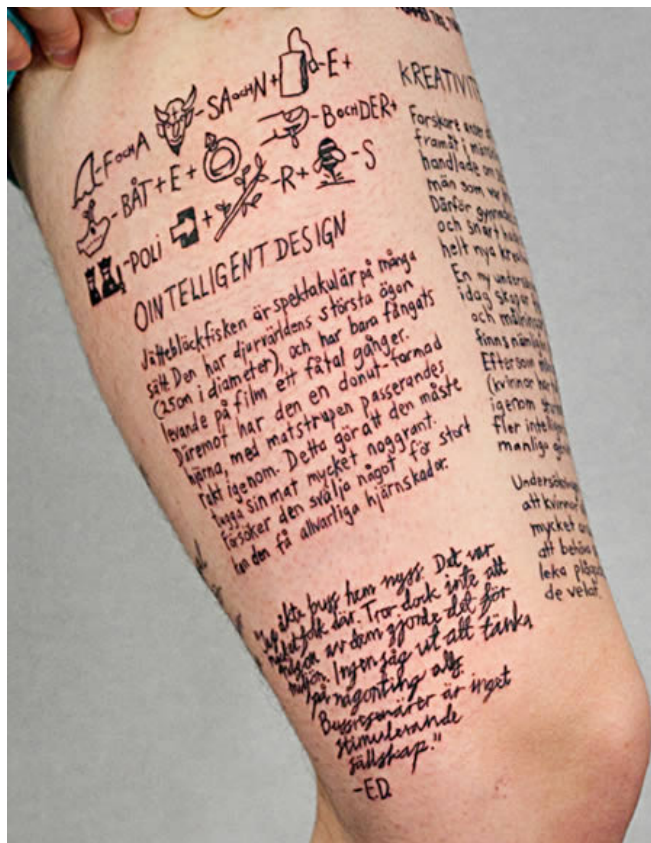 -FochA
-SAochN+
-E+
-BÅT+E+
-BochDER+
-POLI
+
-R+
-S
OINTELLIGENT DESIGN
Jättebläckfisken är spektakulär på många
sätt. Den har djurvärldens största ögon
(25cm i diameter), och har bara fångats
levande på film ett fåtal gånger.
Däremot har den en donut-formad
hjärna, med matstrupen passerandes
rakt igenom. Detta gör att den måste
tugga sin mat mycket noggrant.
Försöker den svälja något för stort
kan den få allvarliga hjärnskador.
åkte buss hem nyss. Det var
folk där. Tror dock inte att
någon av dem gjorde det för
miljön. Ingen såg ut att tänka
på någonting alls.
Bussresenärer är inget
stimulerande
sällskap."
-E.D.
KREATIVIT
Forskare anser
framåt i
handlade om
män som var
Därför gynnade
och snart
helt nya
En ny unders
idag skapar
och målning
finns näml
Eftersom
(kvinnor har
igenom
fler intell
manliga
Undersökn
att kvinnor
mycket
att behöva
leka
de velat.